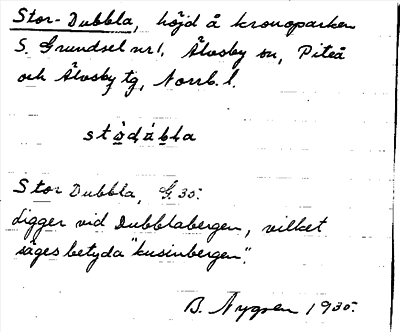 Stor-Dubbla, höjd å kronoparken
S. Grundsel nr 1. Älvsby sn, Piteå
och Älvsby tg, Norrb. l.
stọ̄dạ́ḅla
Stor Dubbla, G 35.
Ligger vid Dubblabergen, vilket
säges betyda "kusinbergen".
B. Nygren 1935.